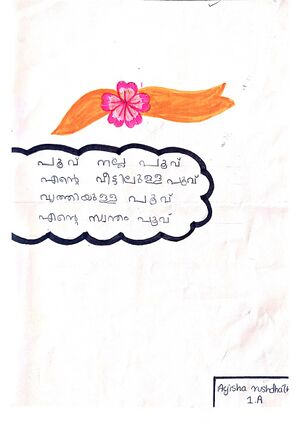 പൂവ് നല്ല പൂവ്
എന്റെ വീട്ടിലുള്ള പൂവ്
വൃത്തിയുള്ള പൂവ്
എന്റെ സ്വന്തം പൂവ്
Ayisha
1.A